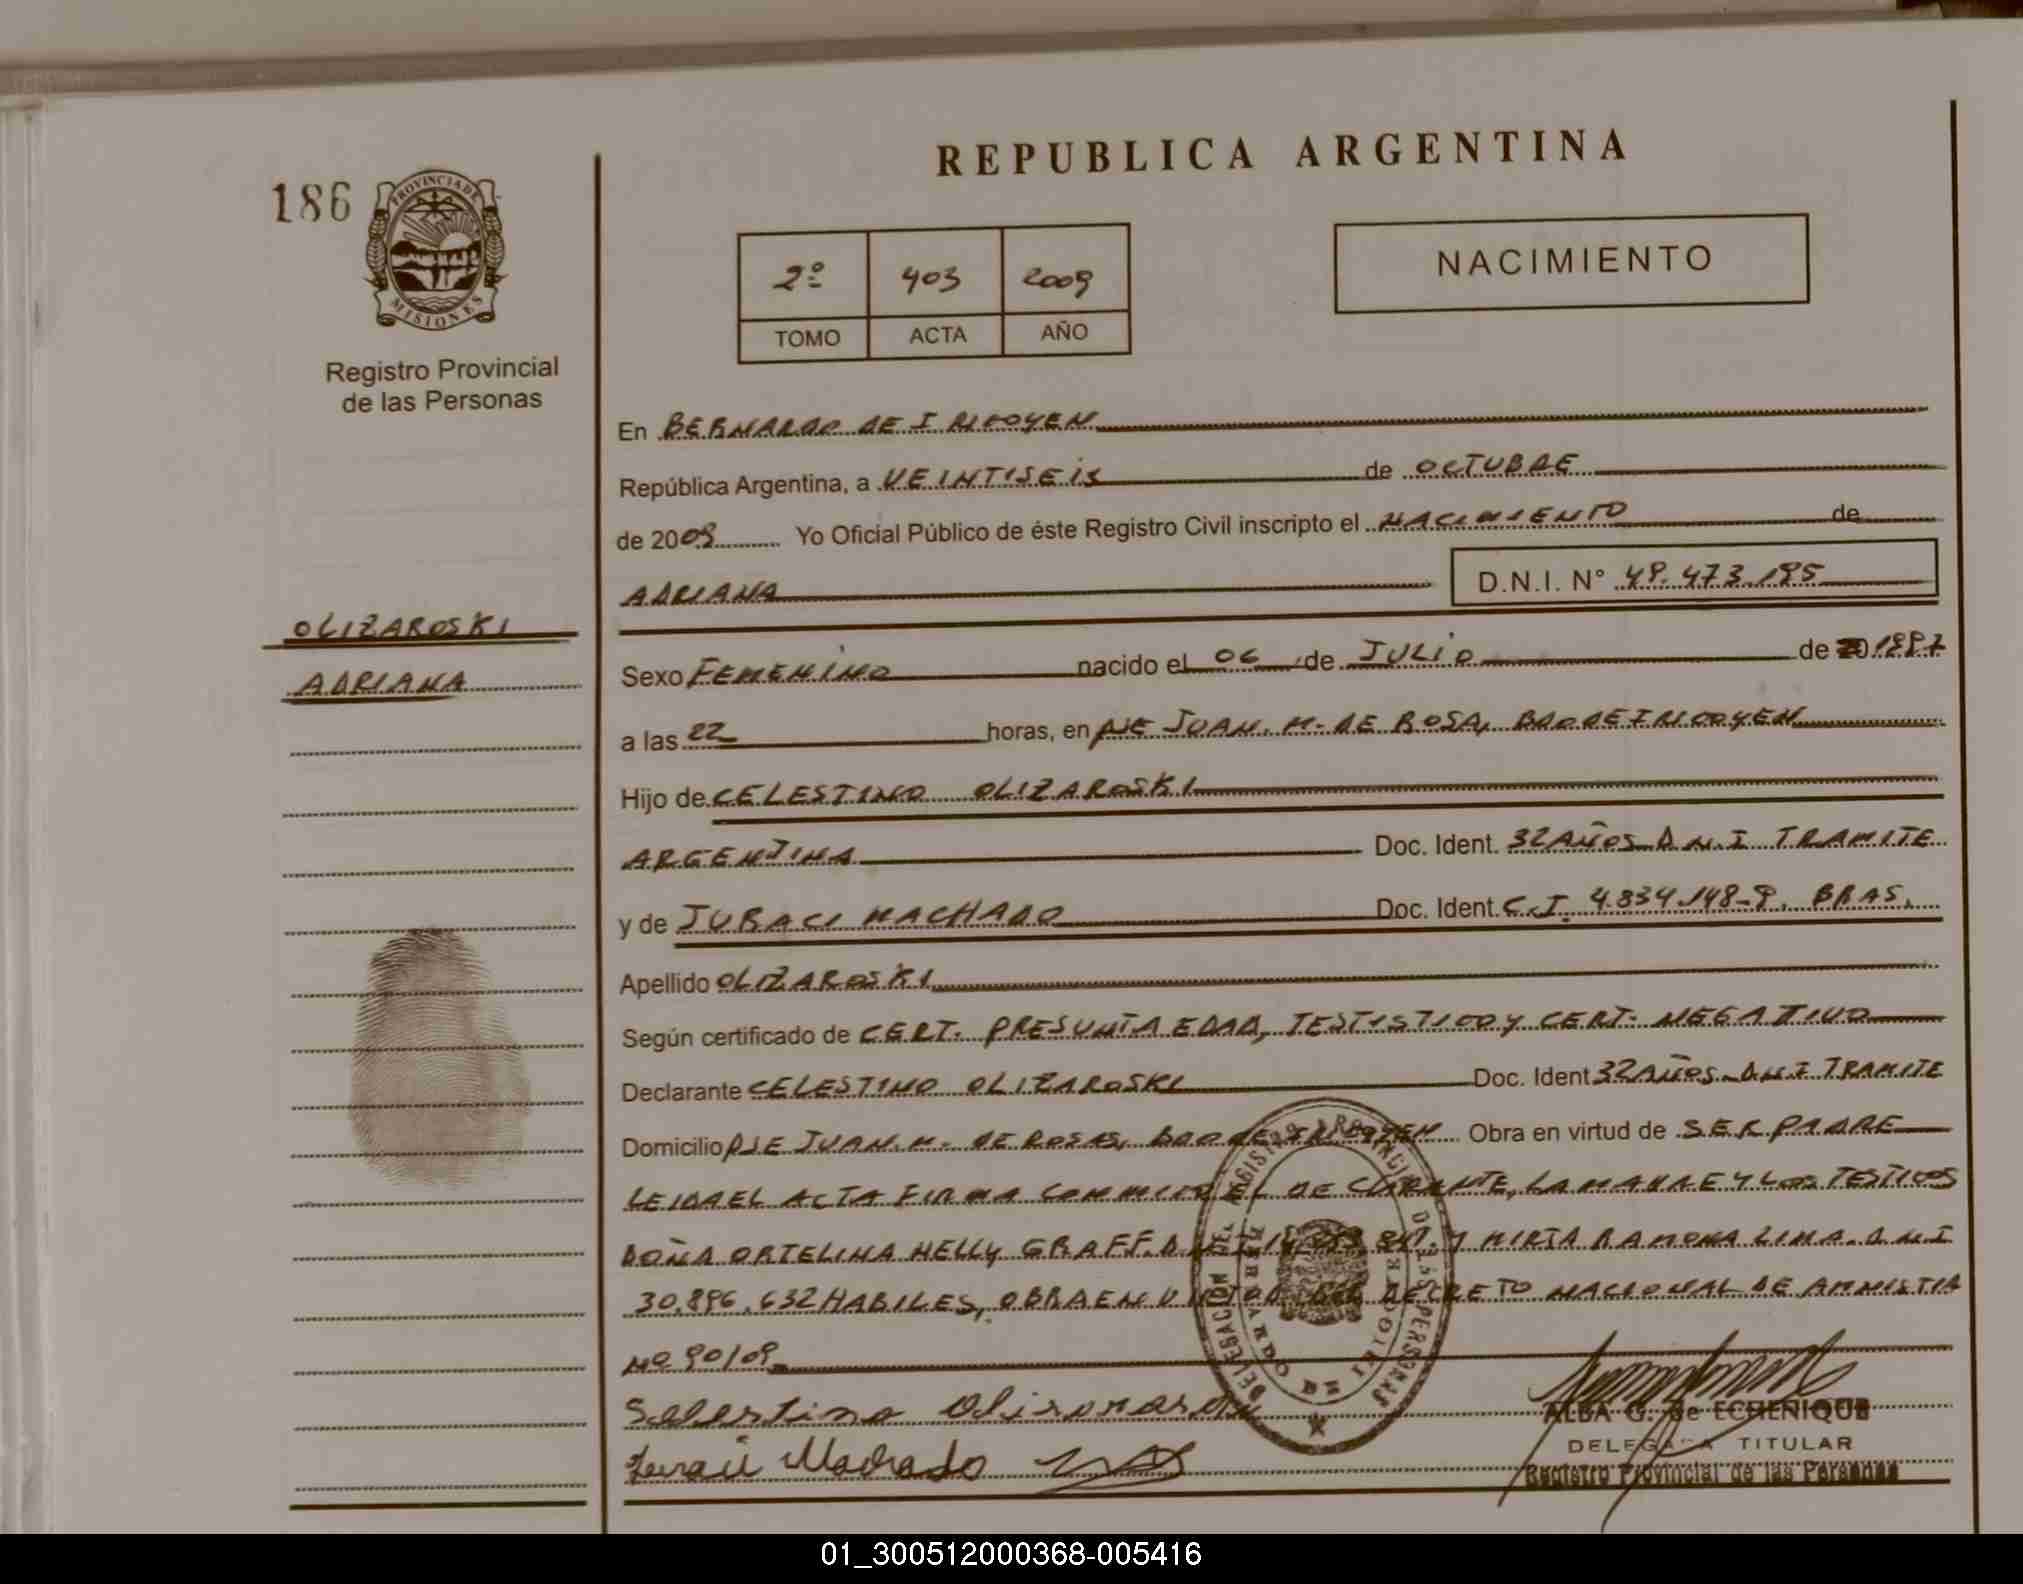 REPUBLICA ARGENTINA
186
PROVINCIA DE
MISIONES
Registro Provincial
de las Personas
NACIMIENTO
2º 403 2009
TOMO ACTA AÑO
En BERNARDO DE IRIGOYEN
República Argentina, a VEINTISEIS de OCTUBRE
de 2009 Yo Oficial Público de éste Registro Civil inscripto el NACIMIENTO de
ADRIANA D.N.I. Nº
OLIZAROSKI
ADRIANA
Sexo FEMENINO nacido el 06 de JULIO de 1997
a las 22 horas, en PJE JUAN. M. DE ROSA, BDO DE IRIGOYEN
Hijo de CELESTINO OLIZAROSKI
ARGENTINA Doc. Ident. 32 AÑOS D.N.I TRAMITE
y de JURACI MACHADO Doc. Ident. C.I. 4.834.148-9. BRAS.
Apellido OLIZAROSKI
Según certificado de CERT. PRESUNTA EDAD, TESTISTIGO Y CERT. NEGATIVO
Declarante CELESTINO OLIZAROSKI Doc. Ident 32 AÑOS D.N.I TRAMITE
Domicilio PJE JUAN. M. DE ROSAS, BDO DE IRIGOYEN Obra en virtud de SER PADRE
LEIDA EL ACTA FIRMA CONMIGO EL DECLARANTE, LA MADRE Y LOS TESTIGOS
DOÑA ORTELINA NELLY GRAFF. D.N.I Y MIRTA RAMONA LIMA. D.N.I
30.896.632 HABILES, OBRA EN VIRTUD DEL DECRETO NACIONAL DE AMNISTIA
Nº 90/09
DELEGACION DEL REGISTRO PROVINCIAL DE LAS PERSONAS
BERNARDO DE IRIGOYEN
Selestino
Machado
ALBA G. de ECHENIQUE
DELEGADA TITULAR
Registro Provincial de las Personas
01_300512000368-005416